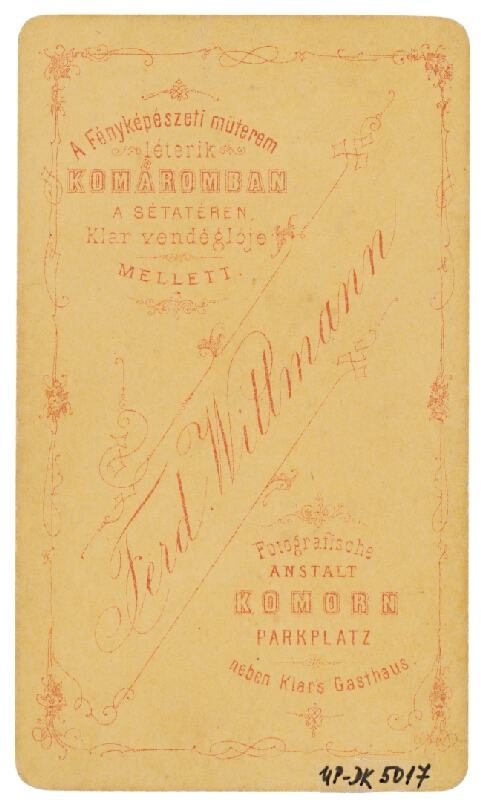 A Fényképészeti műterem
léterik
KOMÁROMBAN
A SÉTATÉREN,
Klar vendéglője
MELLETT.
Ferd. Willmann
Fotografische
ANSTALT
KOMORN
PARKPLATZ
neben Klars Gasthaus.
UP-JK 5017